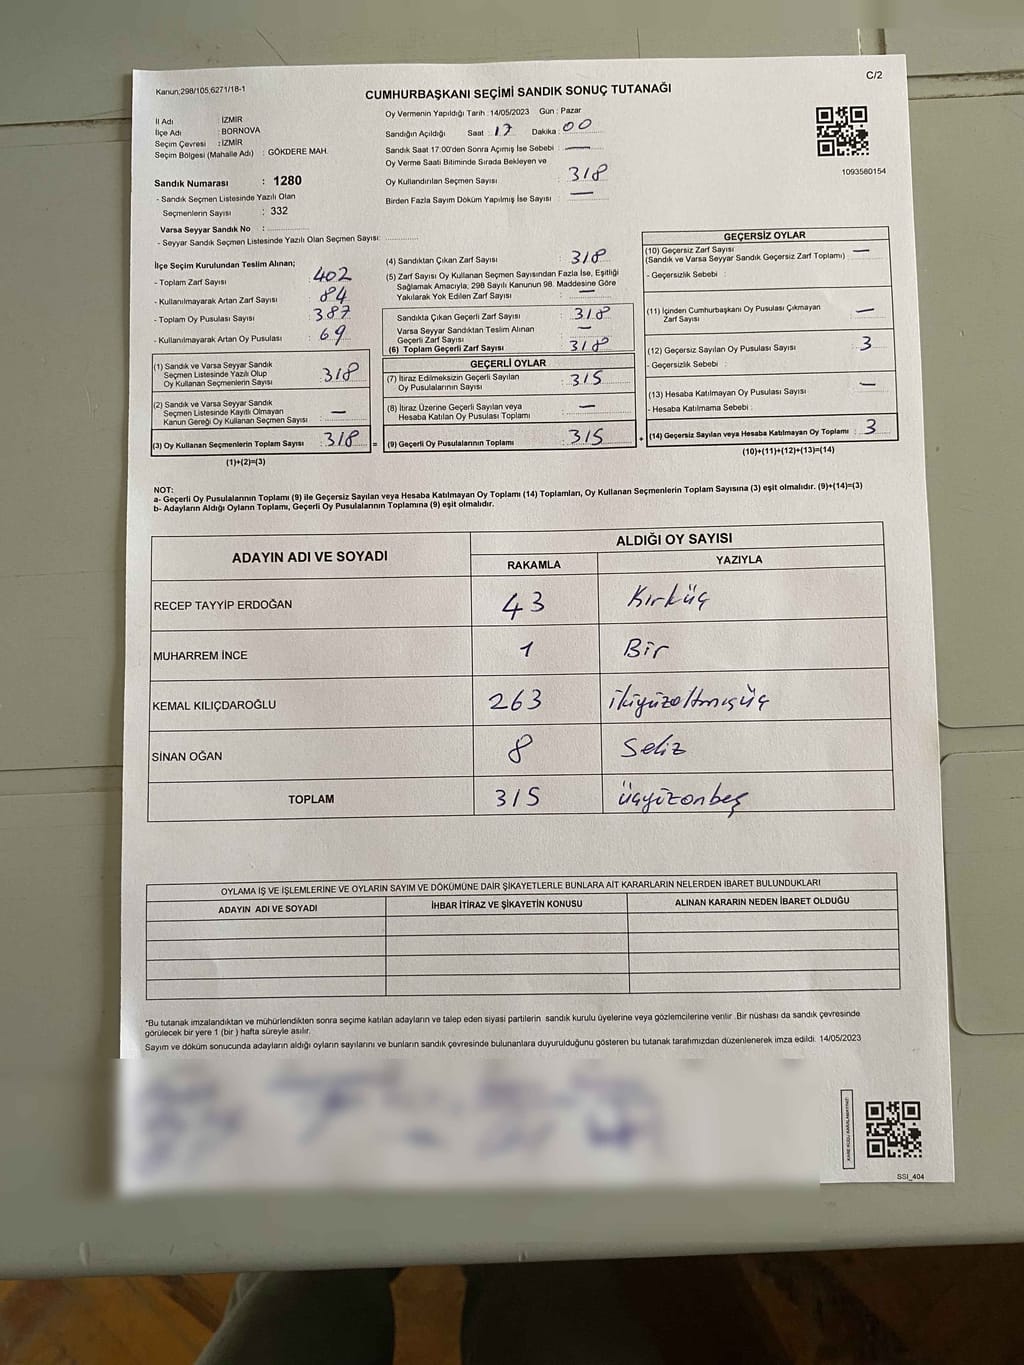 Kanun:298/105,6271/18-1
C/2
CUMHURBAŞKANI SEÇİMİ SANDIK SONUÇ TUTANAĞI
İl Adı : İZMİR
İlçe Adı : BORNOVA
Seçim Çevresi : İZMİR
Seçim Bölgesi (Mahalle Adı) : GÖKDERE MAH.
Sandık Numarası : 1280
- Sandık Seçmen Listesinde Yazılı Olan
Seçmenlerin Sayısı : 332
Varsa Seyyar Sandık No :
- Seyyar Sandık Seçmen Listesinde Yazılı Olan Seçmen Sayısı:
Oy Vermenin Yapıldığı Tarih : 14/05/2023 Gün : Pazar
Sandığın Açıldığı Saat : 17 Dakika : 00
Sandık Saat 17.00'den Sonra Açımış İse Sebebi : —
Oy Verme Saati Bitiminde Sırada Bekleyen ve
Oy Kullandırılan Seçmen Sayısı : 318
Birden Fazla Sayım Döküm Yapılmış İse Sayısı : —
1093580154
İlçe Seçim Kurulundan Teslim Alınan;
- Toplam Zarf Sayısı : 402
- Kullanılmayarak Artan Zarf Sayısı : 84
- Toplam Oy Pusulası Sayısı : 387
- Kullanılmayarak Artan Oy Pusulası : 69
(1) Sandık ve Varsa Seyyar Sandık
Seçmen Listesinde Yazılı Olup
Oy Kullanan Seçmenlerin Sayısı : 318
(2) Sandık ve Varsa Seyyar Sandık
Seçmen Listesinde Kayıtlı Olmayan
Kanun Gereği Oy Kullanan Seçmen Sayısı : —
(3) Oy Kullanan Seçmenlerin Toplam Sayısı : 318 =
(1)+(2)=(3)
(4) Sandıktan Çıkan Zarf Sayısı : 318
(5) Zarf Sayısı Oy Kullanan Seçmen Sayısından Fazla İse, Eşitliği
Sağlamak Amacıyla; 298 Sayılı Kanunun 98. Maddesine Göre
Yakılarak Yok Edilen Zarf Sayısı : —
Sandıkta Çıkan Geçerli Zarf Sayısı : 318
Varsa Seyyar Sandıktan Teslim Alınan
Geçerli Zarf Sayısı : —
(6) Toplam Geçerli Zarf Sayısı : 318
GEÇERLİ OYLAR
(7) İtiraz Edilmeksizin Geçerli Sayılan
Oy Pusulalarının Sayısı : 315
(8) İtiraz Üzerine Geçerli Sayılan veya
Hesaba Katılan Oy Pusulası Toplamı : —
(9) Geçerli Oy Pusulalarının Toplamı : 315 +
GEÇERSİZ OYLAR
(10) Geçersiz Zarf Sayısı
(Sandık ve Varsa Seyyar Sandık Geçersiz Zarf Toplamı) : —
- Geçersizlik Sebebi :
(11) İçinden Cumhurbaşkanı Oy Pusulası Çıkmayan
Zarf Sayısı : —
(12) Geçersiz Sayılan Oy Pusulası Sayısı : 3
- Geçersizlik Sebebi :
(13) Hesaba Katılmayan Oy Pusulası Sayısı : —
- Hesaba Katılmama Sebebi :
(14) Geçersiz Sayılan veya Hesaba Katılmayan Oy Toplamı : 3
(10)+(11)+(12)+(13)=(14)
NOT:
a- Geçerli Oy Pusulalarının Toplamı (9) ile Geçersiz Sayılan veya Hesaba Katılmayan Oy Toplamı (14) Toplamları, Oy Kullanan Seçmenlerin Toplam Sayısına (3) eşit olmalıdır. (9)+(14)=(3)
b- Adayların Aldığı Oyların Toplamı, Geçerli Oy Pusulalarının Toplamına (9) eşit olmalıdır.
ADAYIN ADI VE SOYADI
ALDIĞI OY SAYISI
RAKAMLA YAZIYLA
RECEP TAYYİP ERDOĞAN 43 Kırküç
MUHARREM İNCE 1 Bir
KEMAL KILIÇDAROĞLU 263 ikiyüzaltmışüç
SİNAN OĞAN 8 Sekiz
TOPLAM 315 üçyüzonbeş
OYLAMA İŞ VE İŞLEMLERİNE VE OYLARIN SAYIM VE DÖKÜMÜNE DAİR ŞİKAYETLERLE BUNLARA AİT KARARLARIN NELERDEN İBARET BULUNDUKLARI
ADAYIN ADI VE SOYADI İHBAR İTİRAZ VE ŞİKAYETİN KONUSU ALINAN KARARIN NEDEN İBARET OLDUĞU
*Bu tutanak imzalandıktan ve mühürlendikten sonra seçime katılan adayların ve talep eden siyasi partilerin sandık kurulu üyelerine veya gözlemcilerine verilir .Bir nüshası da sandık çevresinde
görülecek bir yere 1 (bir ) hafta süreyle asılır.
Sayım ve döküm sonucunda adayların aldığı oyların sayılarını ve bunların sandık çevresinde bulunanlara duyurulduğunu gösteren bu tutanak tarafımızdan düzenlenerek imza edildi. 14/05/2023
SSI_404